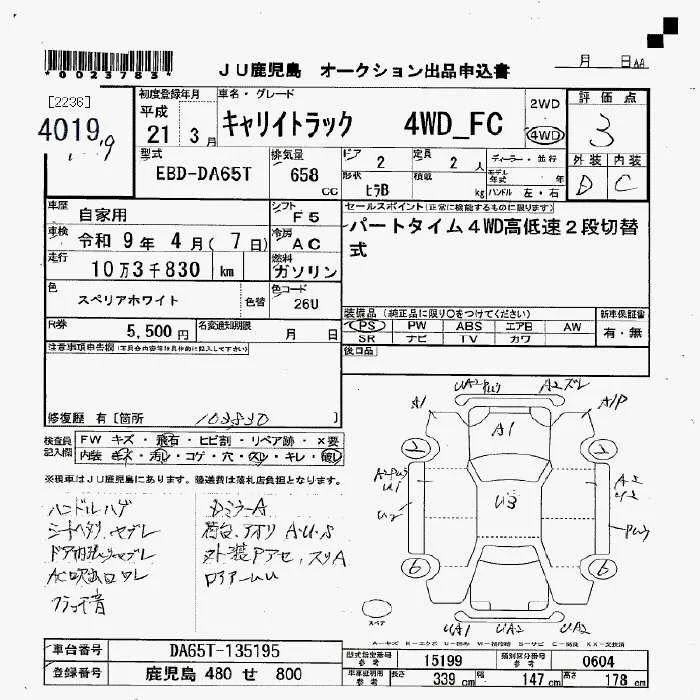 *0023783*
JU鹿児島 オークション出品申込書
月 日 AA
[2236]
4019
9
初度登録年月
平成
21 3月
車名・グレード
キャリイトラック 4WD_FC
2WD
4WD
評価点
3
外装 内装
D C
型式
EBD-DA65T
排気量
658 CC
ドア 2
定員 2 人
形状 ヒラB
積載 kg
ディーラー・並行
モデル年式 年
ハンドル 左・右
車歴 自家用
シフト F5
車検 令和 9年 4月( 7日)
冷房 AC
走行 10万3千830 km
燃料 ガソリン
色 スペリアホワイト
色替
色コード 26U
セールスポイント(正常に機能するものに限ります)
パートタイム4WD高低速2段切替
式
R券 5,500円
名変通知期限 月 日
装備品(純正品に限り○をつけてください)
PS PW ABS エアB AW
SR ナビ TV カワ
新車保証書
有・無
後日品
注意事項申告欄
修復歴 有[箇所 103830 ]
検査員記入欄
FW キズ・飛石・ヒビ割・リペア跡・×要
内装 キズ・汚レ・コゲ・穴・スレ・キレ・破レ
※検車はJU鹿児島にあります。陸送費は落札店負担となります。
ハンドルハゲ
シートヘタリ、ヤブレ
AC吹出口ワレ
Dミラーム
荷台、アオリ A・U・S
ロアアームU
A1
UA2
A2
A/P
A1
2
2
U3
U2
6
6
スペア
UA1
UA2
UA2
車台番号 DA65T-135195
登録番号 鹿児島 480 せ 800
型式指定番号 参考 15199
類別区分番号 参考 0604
車庫証明用 参考 長さ 339 cm 幅 147 cm 高さ 178 cm